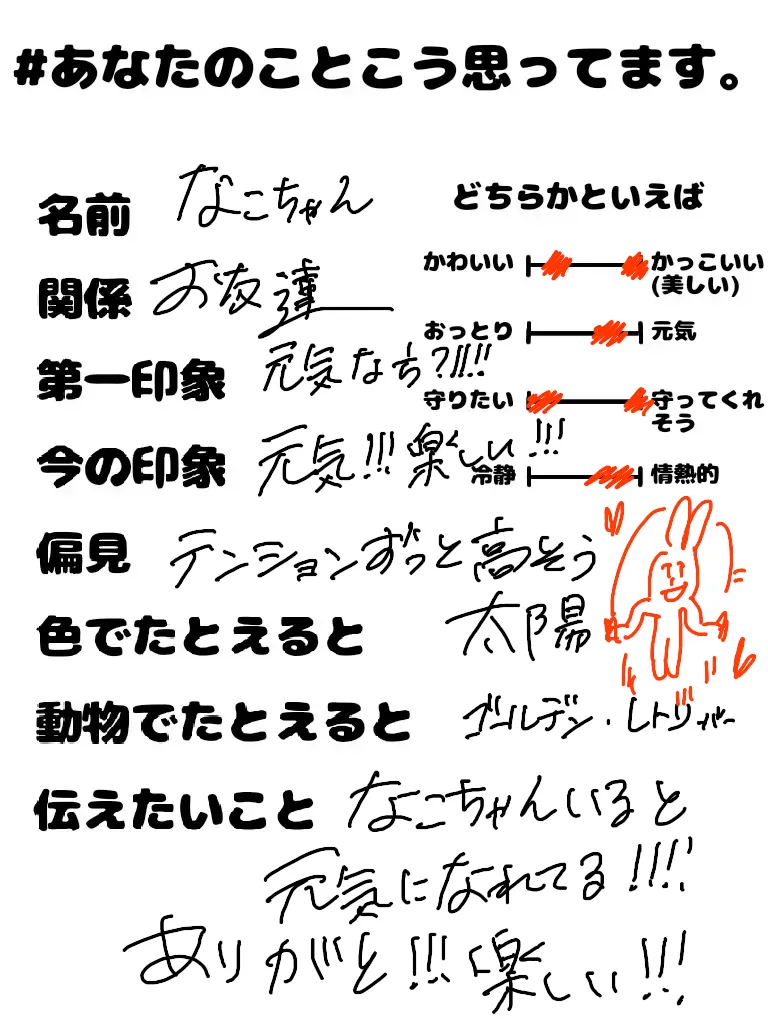 #あなたのことこう思ってます。
名前 なこちゃん
関係 お友達
第一印象 元気なち?!!!!
今の印象 元気!!!楽しい!!!
偏見 テンションずっと高そう
色でたとえると 太陽
動物でたとえると ゴールデン・レトリバー
伝えたいこと なこちゃんいると
元気になれてる!!!!
ありがと!!!楽しい!!!
どちらかといえば
かわいい かっこいい
(美しい)
おっとり 元気
守りたい 守ってくれ
そう
冷静 情熱的